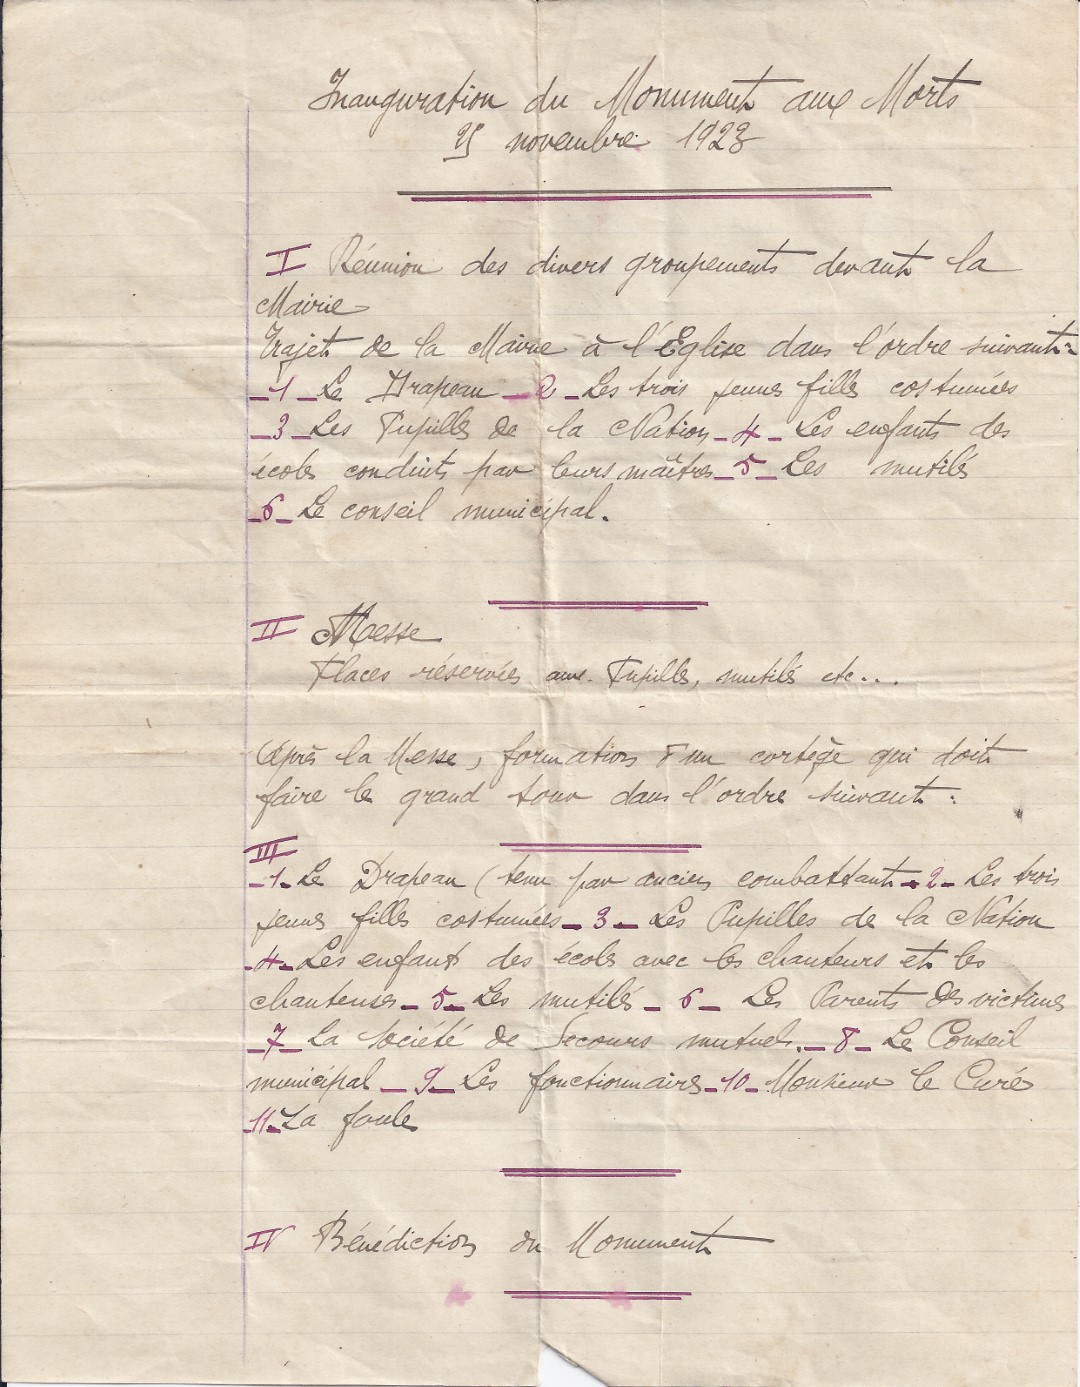 Inauguration du Monument aux Morts
25 novembre 1923
I Réunion des divers groupements devant la
Mairie
Trajet de la Mairie à l'Eglise dans l'ordre suivant:
_1_Le Drapeau _2_Les trois jeunes filles costumées
_3_Les Pupilles de la Nation_4_ Les enfants des
écoles conduits par leurs maîtres_5_Les mutilés
_6_Le conseil municipal.
II Messe
Places réservées aux Pupilles, mutilés etc...
Après la Messe, formation d'un cortège qui doit
faire le grand tour dans l'ordre suivant:
III
_1_Le Drapeau (tenu par anciens combattants_2_Les trois
jeunes filles costumées_3_ Les Pupilles de la Nation
_4_Les enfants des écoles avec les chanteurs et les
chanteuses_5_Les mutilés_6_ Les Parents des victimes
_7_La Société de Secours mutuels._8_Le Conseil
municipal_9_Les fonctionnaires_10_Monsieur le Curé
11_La foule
IV Bénédiction du Monument